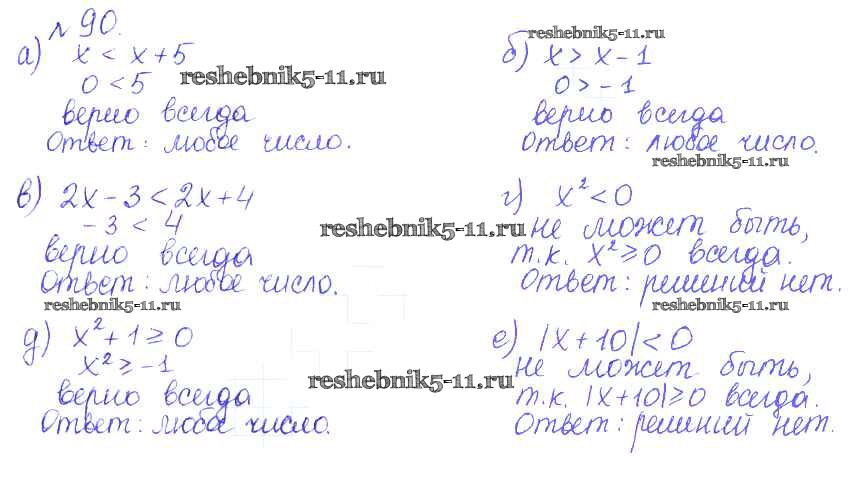 № 90.
а) x < x+5
0 < 5
верно всегда
Ответ: любое число.
reshebnik5-11.ru
б) x > x-1
0 > -1
верно всегда
Ответ: любое число.
reshebnik5-11.ru
reshebnik5-11.ru
в) 2x-3 < 2x+4
-3 < 4
верно всегда
Ответ: любое число.
reshebnik5-11.ru
reshebnik5-11.ru
г) x² < 0
не может быть,
т.к. x² ≥ 0 всегда.
Ответ: решений нет.
reshebnik5-11.ru
д) x²+1 ≥ 0
x² ≥ -1
верно всегда
Ответ: любое число.
reshebnik5-11.ru
е) |x+10| < 0
не может быть,
т.к. |x+10| ≥ 0 всегда.
Ответ: решений нет.